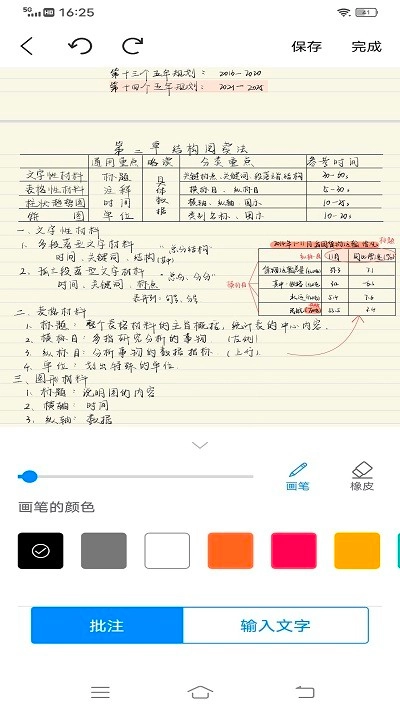 5G HD 16:25 41
保存 完成
第十三个五年规划： 2016-2020
第十四个五年规划： 2021-2025
第二章 结构阅读法
通用重点 略读 分类重点 参考时间
文字性材料 标题 具体数据 关键的点、关键词、段落结构 30-60s
表格性材料 注释 横标目、纵标目 5-30s
柱状趋势图 时间 横轴、纵轴、图示 10-25s
饼图 单位 类别名称、图示 10-20s
一. 文字性材料
1. 多段落型文字材料 "总分结构"
时间、关键词、结构
2. 孤立段落型文字材料 "总分、分分"
时间、关键词、标点
二. 表格材料
1. 标题：整个表格材料的主旨概括，统计表的中心内容.
2. 横标目：多指研究分析的事物. (左侧)
3. 纵标目：分析事物的数据指标. (上方)
4. 单位：划出特殊的单位.
三. 图形材料
1. 标题：说明图的内容
2. 横轴：时间
3. 纵轴：数据
标题
纵标目 11月
横标目
画笔 橡皮
画笔的颜色
批注 输入文字